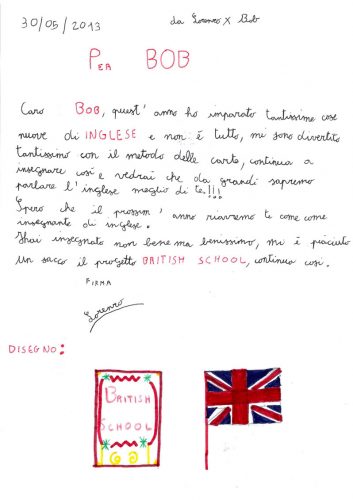 30/05/2013
da Lorenzo X Bob
PER BOB
Caro BOB, quest' anno ho imparato tantissime cose
nuove di INGLESE e non è tutto, mi sono divertito
tantissimo con il metodo delle carte, continua a
insegnare così e vedrai che da grandi sapremo
parlare l'inglese meglio di te.!!!
Spero che il prossim' anno riavremo te come come
insegnante di inglese.
Hai insegnato non bene ma benissimo, mi è piaciuto
un sacco il progetto BRITISH SCHOOL, continua così.
FIRMA
Lorenzo
DISEGNO:
BRITISH
SCHOOL